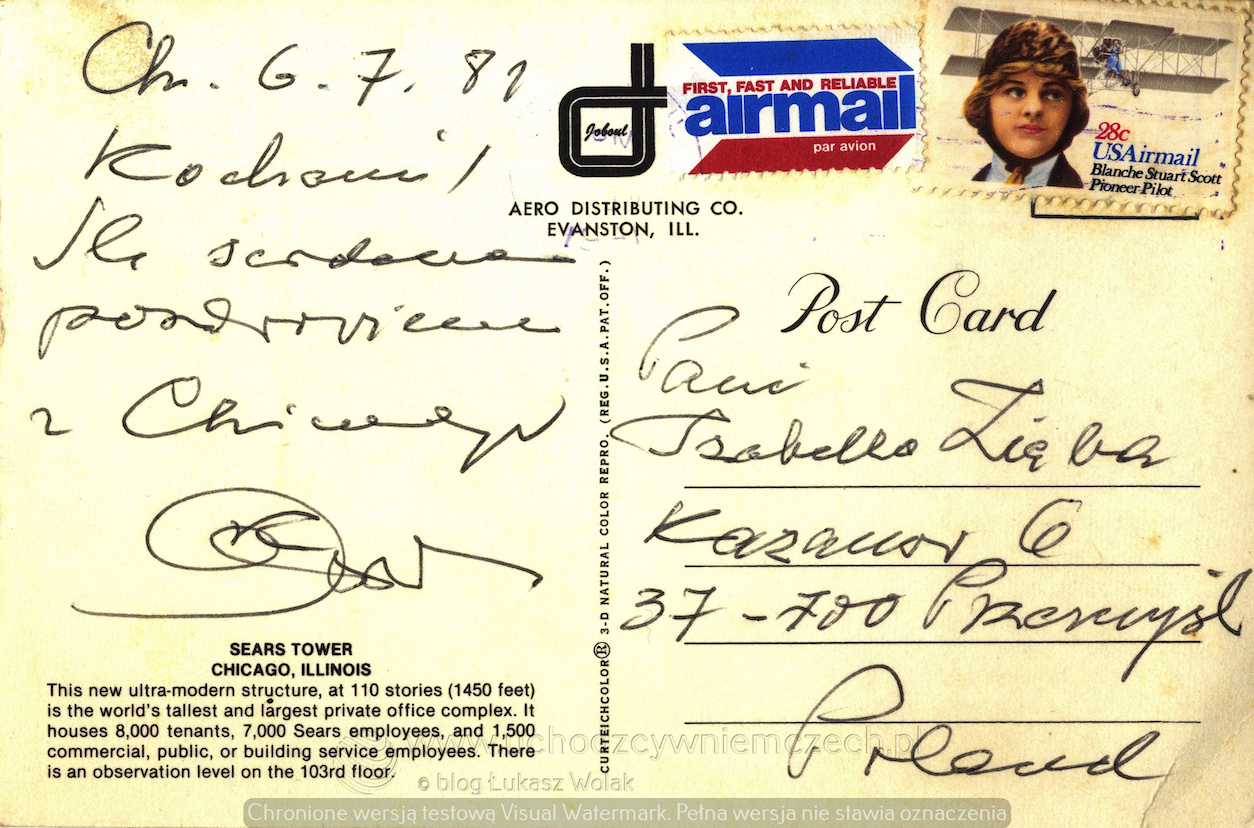 Ch. 6. 7. 81
Kochani!
Ile serdecznie
pozdrowienia
z Chicago
SEARS TOWER
CHICAGO, ILLINOIS
This new ultra-modern structure, at 110 stories (1450 feet)
is the world's tallest and largest private office complex. It
houses 8,000 tenants, 7,000 Sears employees, and 1,500
commercial, public, or building service employees. There
is an observation level on the 103rd floor.
Joboul
AERO DISTRIBUTING CO.
EVANSTON, ILL.
CURTEICHCOLOR® 3-D NATURAL COLOR REPRO. (REG. U.S.A. PAT. OFF.)
FIRST, FAST AND RELIABLE
airmail
par avion
28c
USAirmail
Blanche Stuart Scott
Pioneer Pilot
Post Card
Pani
Izabella Zięba
Kazanów 6
37-700 Przemyśl
Poland
www.uchodzcywniemczech.pl
© blog Łukasz Wolak
Chronione wersją testową Visual Watermark. Pełna wersja nie stawia oznaczenia